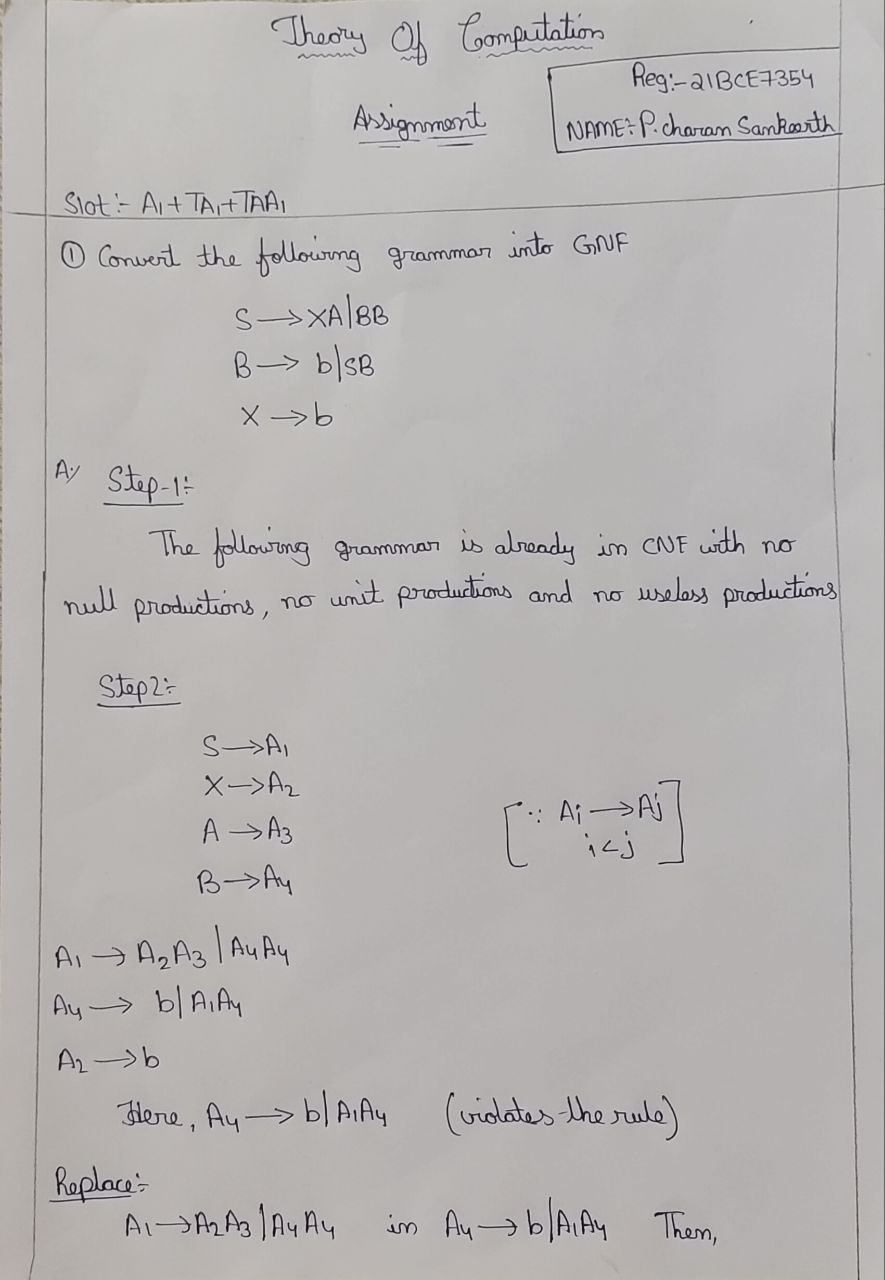 Theory Of Computation
Reg:- 21BCE7354
Assignment
NAME:- P. charan Sankeerth
Slot:- A1+TA1+TAA1
① Convert the following grammar into GNF
S→XA|BB
B→ b|SB
X→b
A:/ Step-1:-
The following grammar is already in CNF with no
null productions, no unit productions and no useless productions
Step2:-
S→A1
X→A2
A→A3
B→A4
[∵ Ai→Aj
i<j]
A1→A2A3|A4A4
A4→ b|A1A4
A2→b
Here, A4→b|A1A4 (violates the rule)
Replace:-
A1→A2A3|A4A4 in A4→b|A1A4 Then,